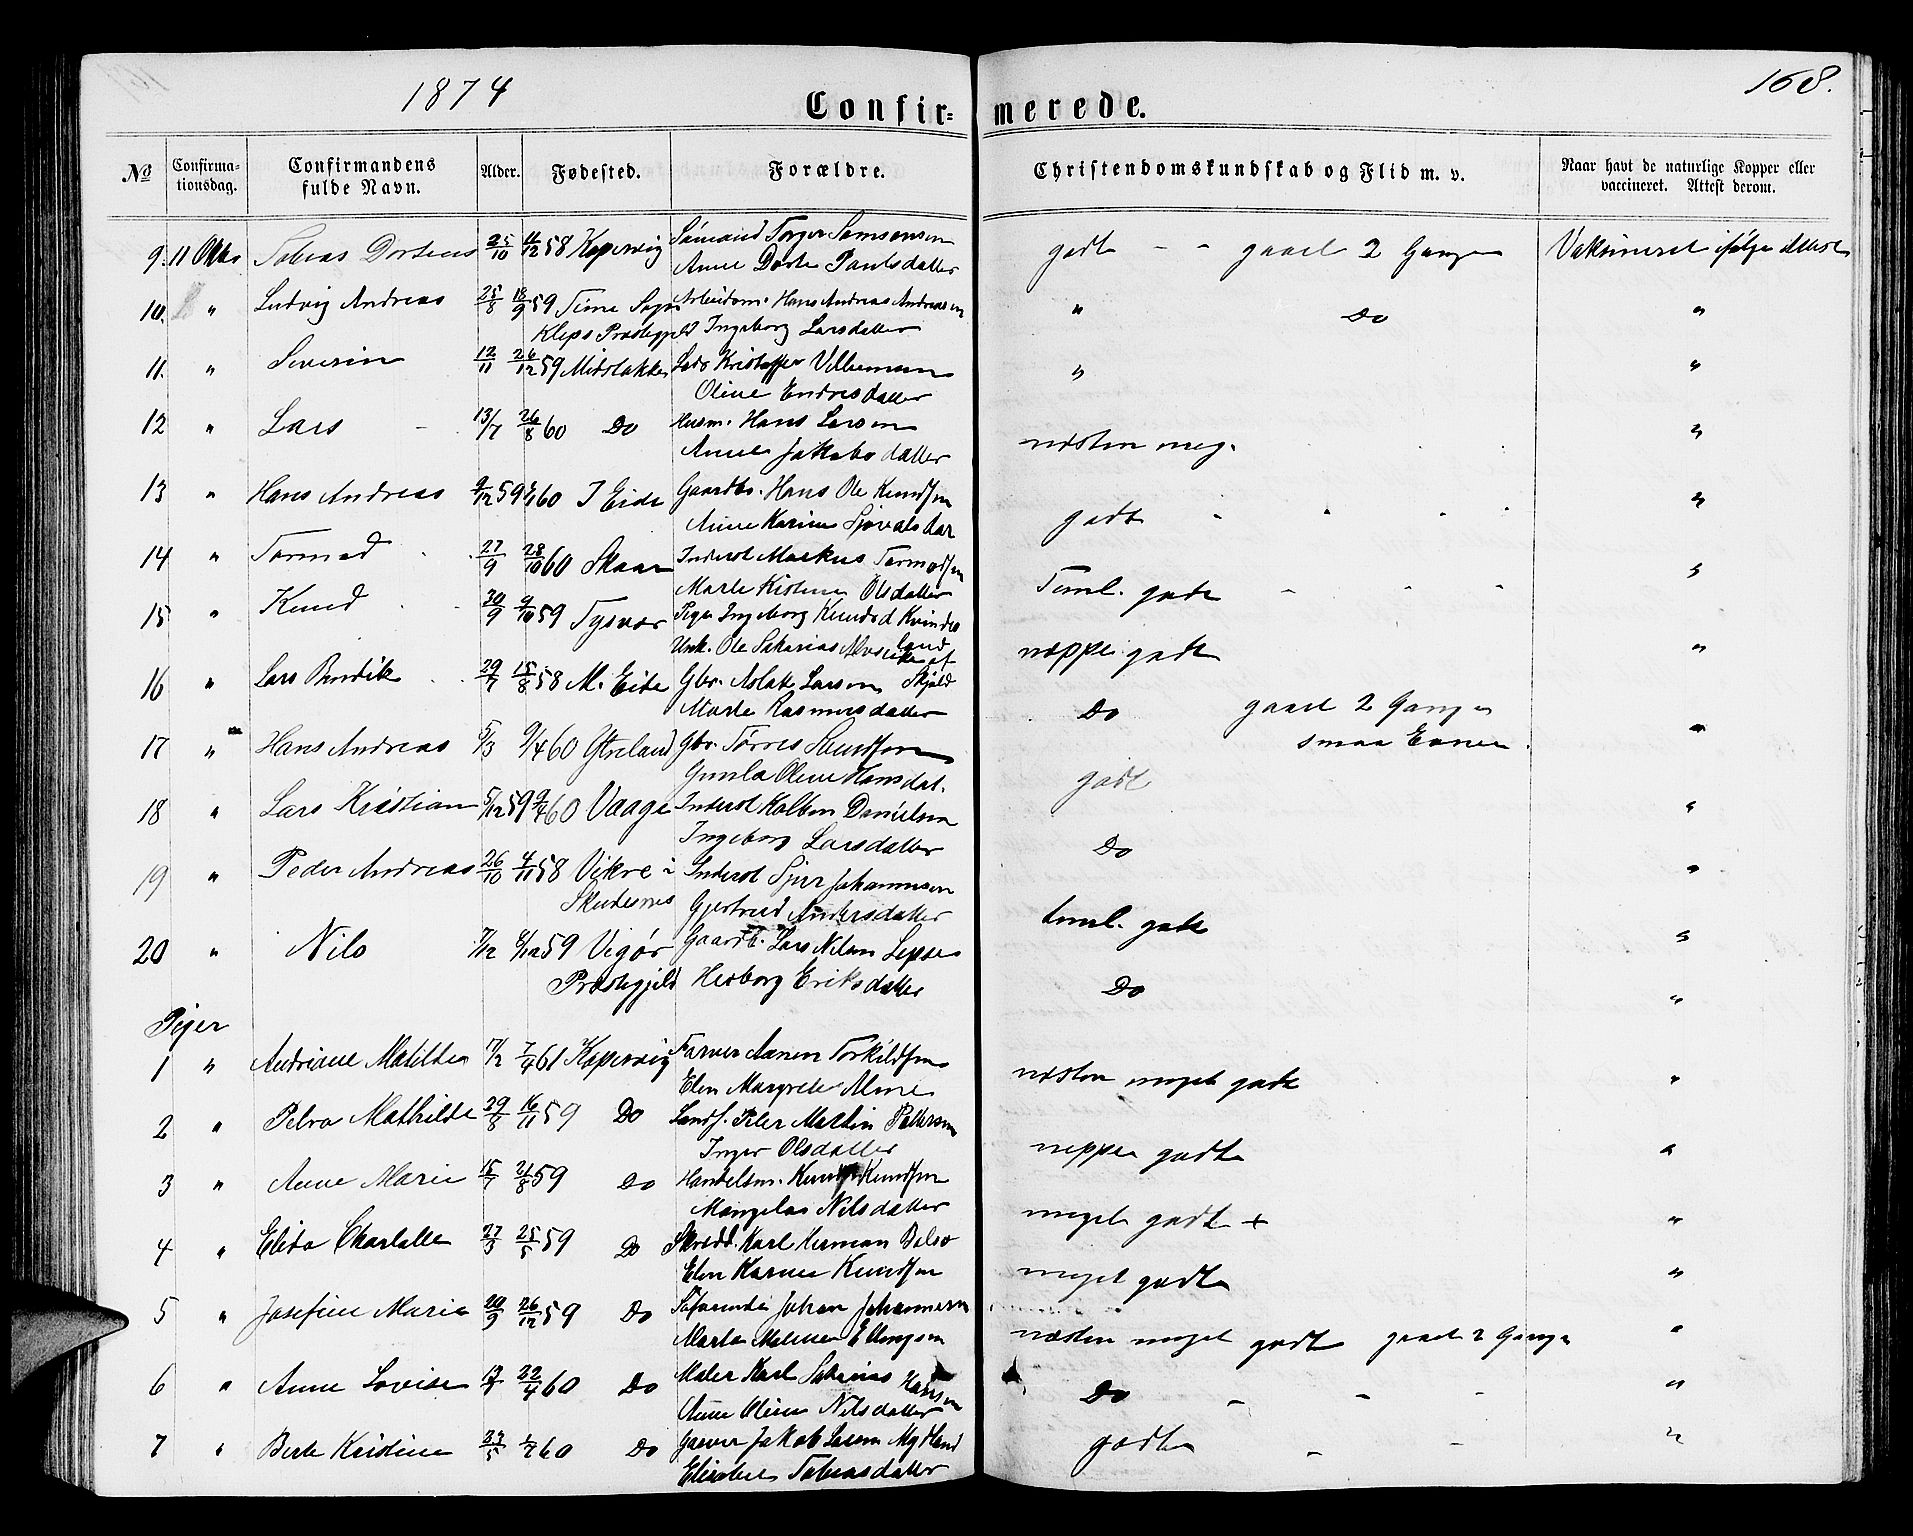 1874
168.
Confir= merede.
No Confirma-tionsdag. Confirmandens fulde Navn. Alder. Fødested. Forældre. Christendomskundskab og Flid m. v. Naar havt de naturlige Kopper eller vaccineret. Attest derom.
9. 11 Okto Tobias Dorteus 25/10 11/12 58 Kopervig Sömand Torger Samsonsen godt - - gaaet 2 Gange Vaksineret ifölge Attest
Anne Dorte Paulsdatter
10. " Ludvig Andreas 25/8 18/9 59 Time Sogn Arbeidsm. Hans Andreas Andreasen " Do "
Kleps Præstegjeld Ingeborg Larsdatter
11. " Severin 12/11 26/12 59 Midstokke Lods Kristoffer Villumsen " "
Oline Endresdatter
12 " Lars - 13/7 26/8 60 Do Husm. Hans Larsen næsten meg. "
Anne Jakobsdatter
13 " Hans Andreas 9/12 59 60 I Eide Gaardbr. Hans Ole Knudsen godt "
Anne Karine
14 " Tormod 27/9 28/10 60 Skaar Inderst Markus Tormodsen Teml. godt "
Marte Kistine Olsdatter
15 " Knud 20/9 9/10 59 Tysvær Pige Ingeborg Knudsd Kvindes land næppe godt "
Unk. Ole Sakarias
16 " Lars Bendik 29/7 15/8 58 M. Eide Gbr. Aslak Larsen Skjold Do gaaet 2 Gange
Marte Rasmusdatter smaa Evner.
17 " Hans Andreas 5/3 9/4 60 Ytreland Gbr. Törres Knudsen godt "
Gunla Oline Hansdat.
18 " Lars Kristian 5/12 59 9/4 60 Vaage Inderst Kolben Danielsen Do "
Ingeborg Larsdatter
19 " Peder Andreas 26/10 4/11 58 Vikre i Inderst Sjur Johannesen teml. godt "
Skudesnes Gjertrud Andersdatter
20 " Nils 7/12 59 Vigör Gaardb. Lars Nilsen Do "
Præstegjeld Herborg Eriksdatter
Piger
1 " Andriane Matilde 7/2 7/4 61 Kopervig Farver Aanen Torkildsen næsten meget godt "
Elen Margrete
2 " Petra Mathilde 29/8 16/11 59 Do Landh. Peter Martin Pettersen neppe godt "
Inger Olsdatter
3 " Anne Marie 15/7 21/8 59 Do Handelsm. Knud Knudsen meget godt + "
Mangela Nilsdatter
4 " Elida Charlotte 27/3 25/5 59 Do Skredd. Karl Herman meget godt "
Elen Karine Knudsen
5 " Josefine Marie 20/9 26/12 59 Do Söfarende Johan Johannesen næsten meget godt gaaet 2 Gange "
Marta Malene Ellingsen
6 " Anne Lovise 22/4 60 Do Maler Karl Sakarias Hansen Do - - - "
Anne Oline Nilsdatter
7 " Berte Kristine 60 Do Garver Jakob Larsen Mydland godt - - "
Elisabet Tobiasdatter